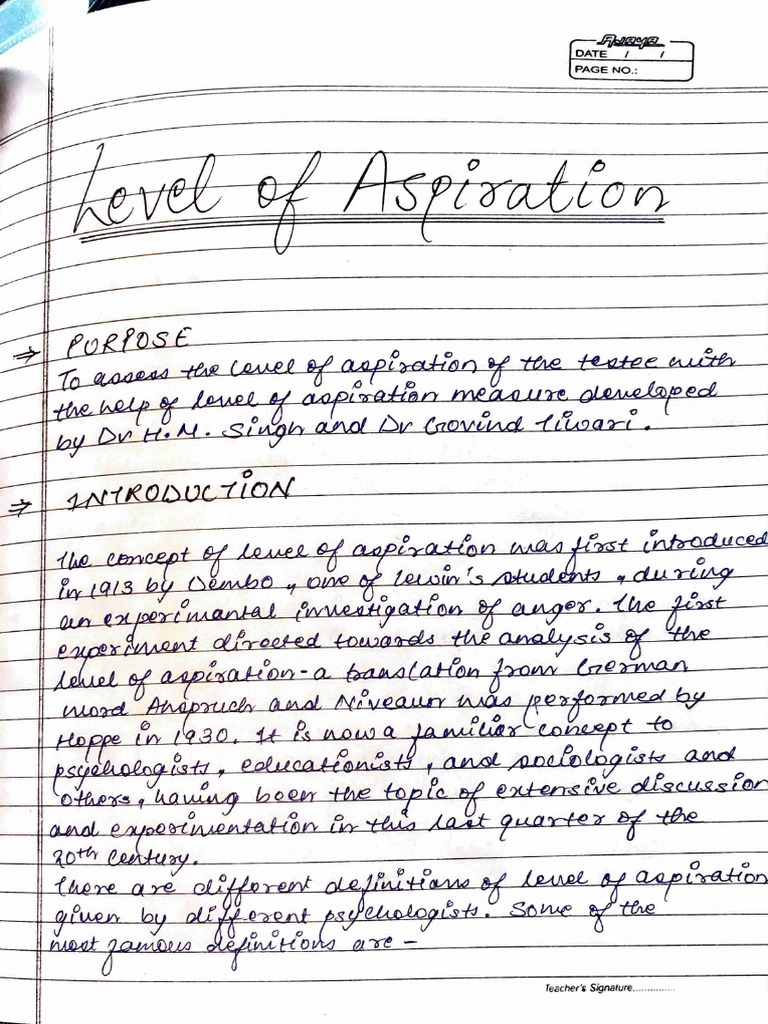 Ajaya
DATE / /
PAGE NO.:
Level of Aspiration
⇒ PURPOSE
To assess the level of aspiration of the testee with
the help of level of aspiration measure developed
by Dr H.M. Singh and Dr Govind Tiwari.
⇒ INTRODUCTION
The concept of level of aspiration was first introduced
in 1913 by Dembo, one of Lewin's students, during
an experimantal investigation of anger. The first
experiment directed towards the analysis of the
level of aspiration - a translation from German
word Anspruch and Niveaun was performed by
Hoppe in 1930. It is now a familiar concept to
psychologists, educationists, and sociologists and
others, having been the topic of extensive discussion
and experimentation in this last quarter of the
20th Century.
There are different definitions of level of aspiration
given by different psychologists. Some of the
most famous definitions are -
Teacher's Signature..............